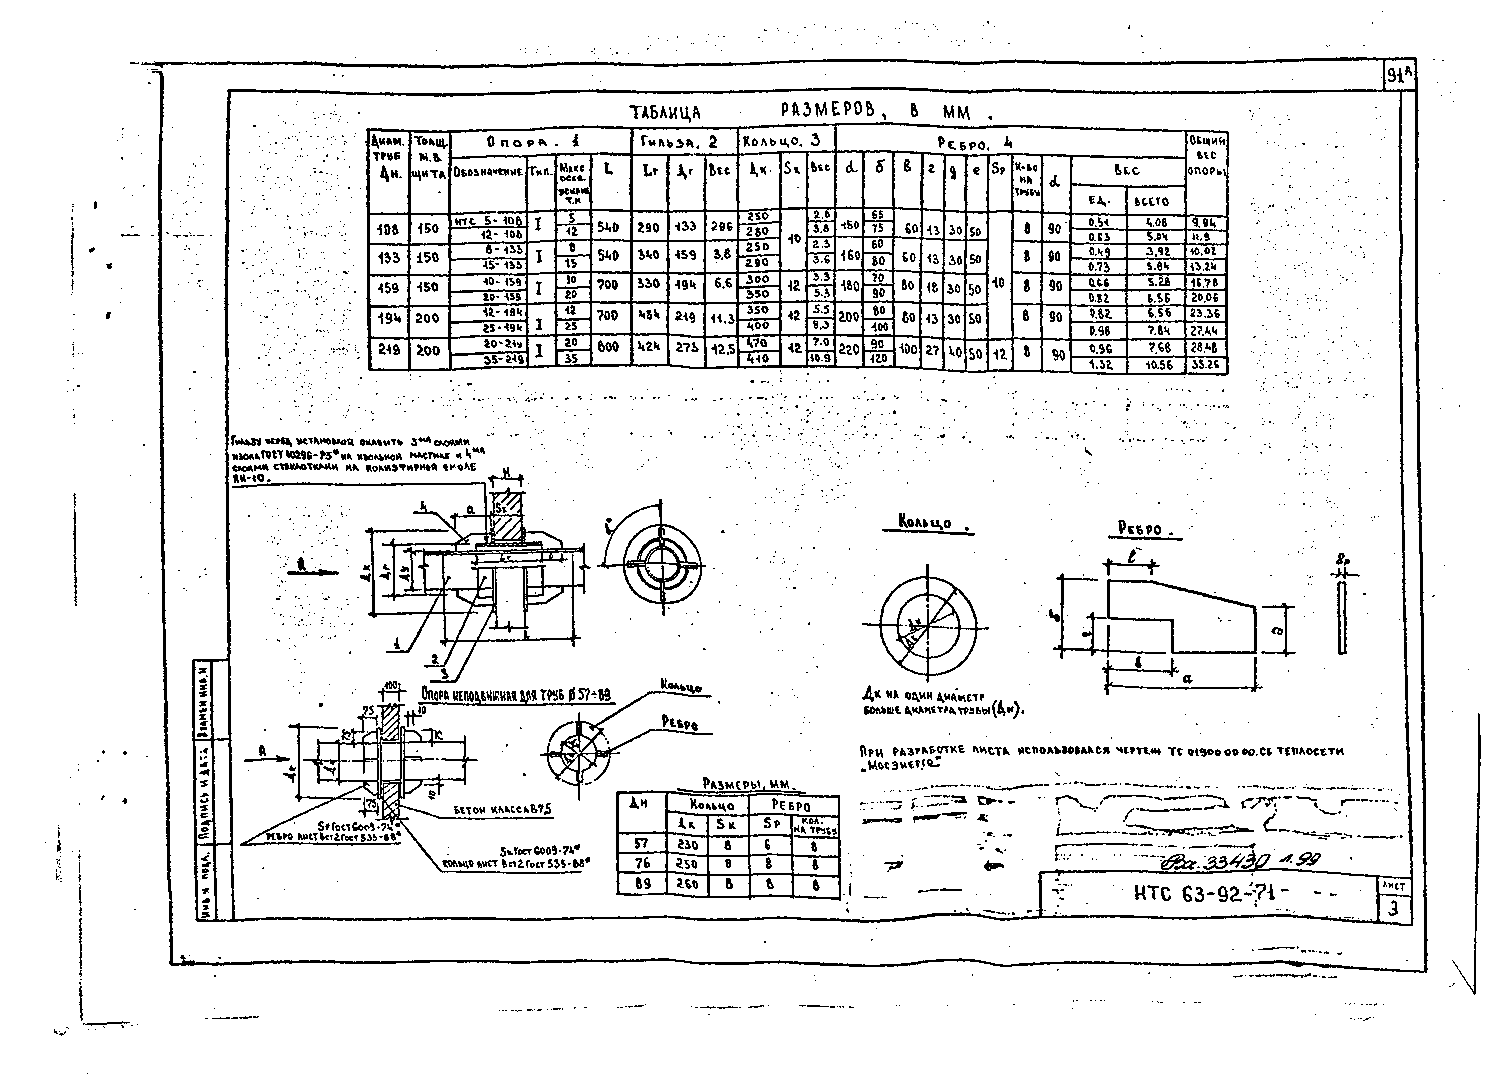 91А
ТАБЛИЦА РАЗМЕРОВ, В ММ.
ДИАМ. ТРУБ Дн. ТОЛЩ. М.В. ЩИТА ОПОРА. 1 ГИЛЬЗА. 2 КОЛЬЦО. 3 РЕБРО. 4 ОБЩИЙ ВЕС ОПОРЫ
ОБОЗНАЧЕНИЕ ТИП. L Lг Дг ВЕС Дк. Sк ВЕС d б в г д е Sр К-ВО НА ТРУБУ d ВЕС
ЕД. ВСЕГО
108 150 НТС 5-108 I 5 540 290 133 286 250 10 2.8 150 65 60 13 30 50 10 8 90 0.51 4.08 9.94
12-108 12 280 3.8 75 0.63 5.04 11.9
133 150 8-133 I 8 540 340 159 3,8 250 2.3 160 60 60 13 30 50 8 90 0.49 3.92 10.02
15-133 15 290 3.6 80 0.73 5.84 13.24
159 150 10-159 I 10 700 330 194 6,6 300 12 3.3 180 70 80 18 30 50 8 90 0.66 5.28 16.78
20-159 20 350 5.3 90 0.82 6.56 20.06
194 200 12-194 I 12 700 484 219 11.3 350 12 5.5 200 80 80 13 30 50 8 90 0.82 6.56 23.36
25-194 25 400 8.3 100 0.98 7.84 27.44
219 200 20-219 I 20 800 424 273 12,5 470 12 7.0 220 90 100 27 40 50 12 8 90 0.96 7.68 28.48
35-219 35 410 10.9 120 1.32 10.56 35.26
ГИЛЬЗУ ПЕРЕД УСТАНОВКОЙ ОКЛЕИТЬ 3мя СЛОЯМИ
ИЗОЛА ГОСТ 10296-75* НА ИЗОЛЬНОЙ МАСТИКЕ И 4мя
СЛОЯМИ СТЕКЛОТКАНИ НА ПОЛИЭФИРНОЙ СМОЛЕ
ПН-10.
Н
4 а Sк
А Дк Дг Lг
1
2
3
КОЛЬЦО.
Дк
РЕБРО.
б а Sр
ДК НА ОДИН ДИАМЕТР
БОЛЬШЕ ДИАМЕТРА ТРУБЫ (Дн).
ОПОРА НЕПОДВИЖНАЯ ДЛЯ ТРУБ Ø 57÷89
100
75 10
75
А Дк
75 10
КОЛЬЦО
РЕБРО
БЕТОН КЛАССА В 7,5
Sр ГОСТ 6009-74*
РЕБРО ЛИСТ Вст2 ГОСТ 535-88*
Sк ГОСТ 6009-74*
КОЛЬЦО ЛИСТ Вст2 ГОСТ 535-88*
РАЗМЕРЫ, ММ.
Дн КОЛЬЦО РЕБРО
Дк Sк Sр КОЛ. НА ТРУБУ
57 230 8 6 8
76 250 8 8 8
89 260 8 8 8
ПРИ РАЗРАБОТКЕ ЛИСТА ИСПОЛЬЗОВАЛСЯ ЧЕРТЕЖ ТС 01900 00 00.СБ ТЕПЛОСЕТИ
„МОСЭНЕРГО"
33430 1.99
НТС 63-92-71
ЛИСТ
3
ВЗАМЕН ИНВ. N
ПОДПИСЬ И ДАТА
ИНВ N ПОДЛ.